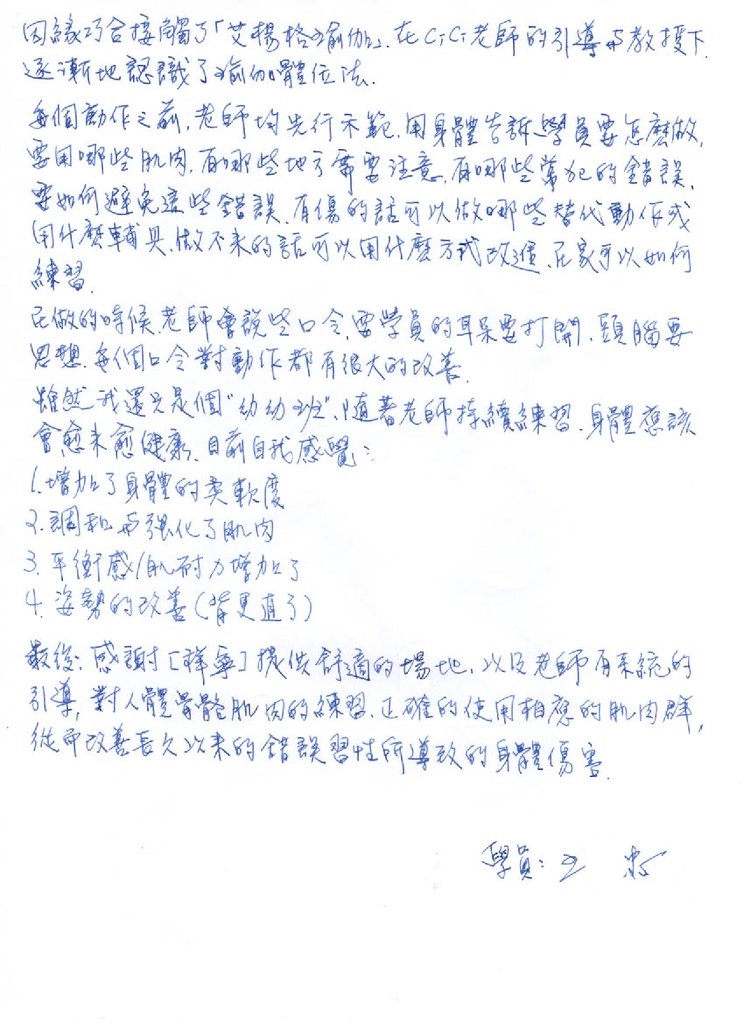 因緣巧合接觸了「艾楊格瑜伽」.在CiCi老師的引導与教授下.
逐漸地認識了瑜伽體位法.
每個動作之前,老師均先行示範.用身體告訴學員要怎麼做,
要用哪些肌肉.有哪些地方需要注意.有哪些常犯的錯誤.
要如何避免這些錯誤.有傷的話可以做哪些替代動作或
用什麼輔具.做不來的話可以用什麼方式改進.在家可以如何
練習.
在做的時候.老師會說些口令.要學員的耳朵要打開.頭腦要
思想.每個口令對動作都有很大的改善.
雖然我還只是個"幼幼班".隨著老師持續練習.身體應該
會愈來愈健康.目前自我感覺:
1.增加了身體的柔軟度
2.調和与强化了肌肉
3.平衡感/肌耐力增加了
4.姿勢的改善(背更直了)
最後:感謝[祥寧]提供舒適的場地.以及老師有系統的
引導,對人體骨骼肌肉的練習.正確的使用相應的肌肉群,
從而改善長久以來的錯誤習性所導致的身體傷害.
學員:王